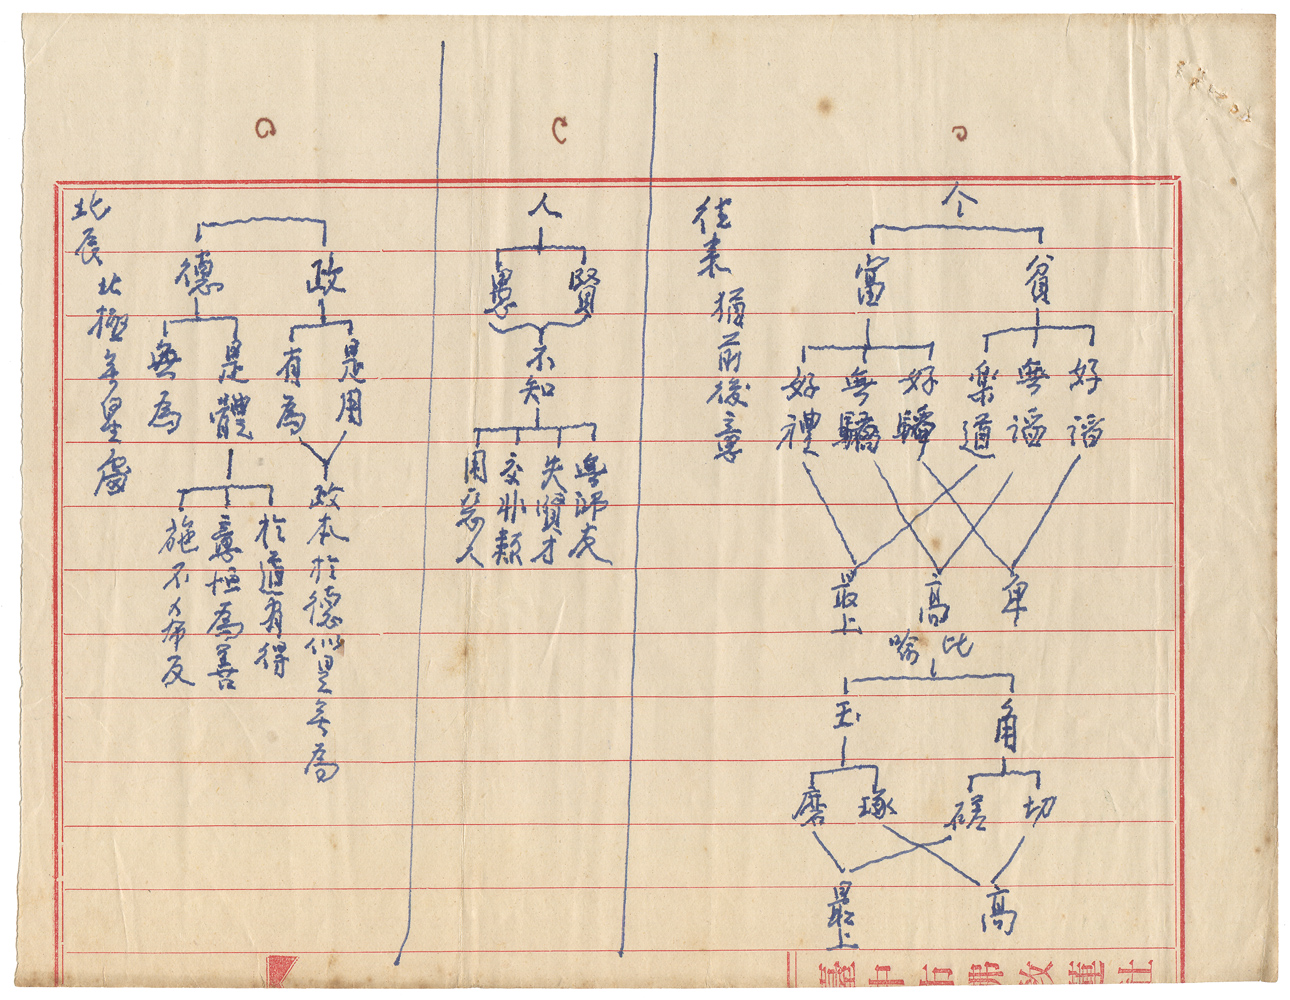 个
貧
富
好諂
無諂
樂道
好驕
無驕
好禮
卑
高
最上
比喻
角
玉
切
磋
琢
磨
高
最上
往来 猶前後意
人
賢
愚
不知
無師友
失賢才
交非類
用惡人
政
德
是用
有為
是體
無為
政本於德似是无為
於道有得
意恒為善
施不希反
北辰 北極無星處
臺中市佛教蓮社